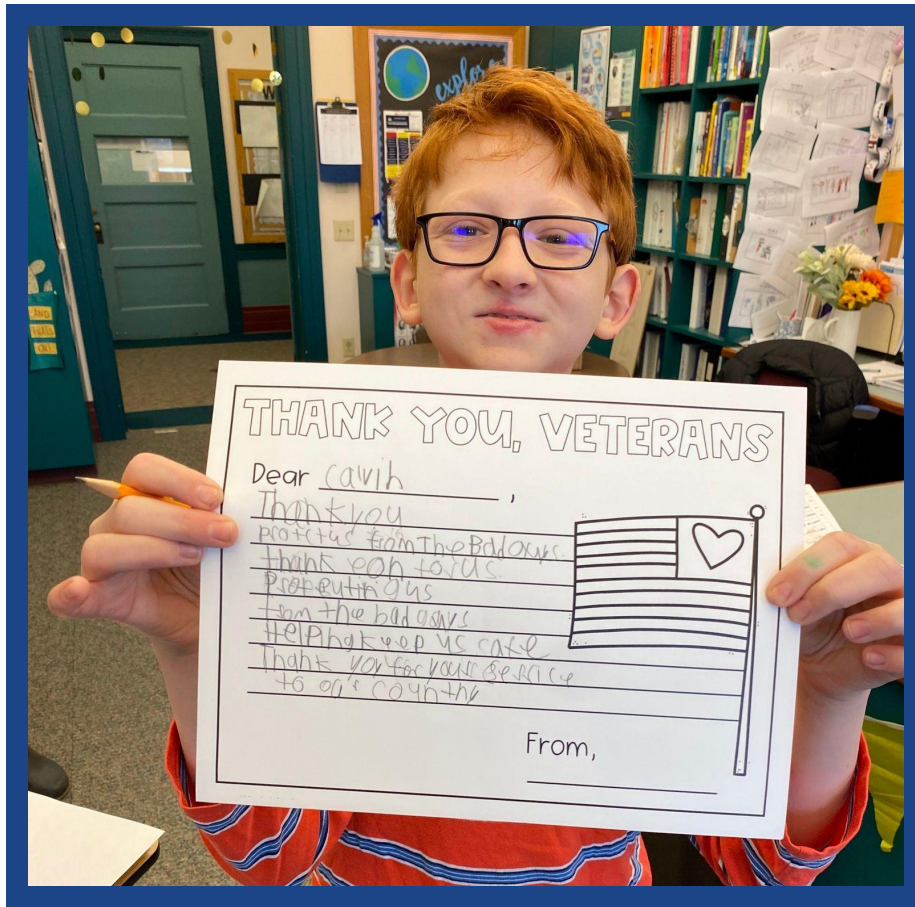 explore
AND
THATS
OK!
THANK YOU, VETERANS
Dear cavin,
Thank you
protect us from The Bad Guys.
thank eon forus
Proteuting us
from the bad guys
Helping keep us cafe
Thank you for your Service
to our country
From,